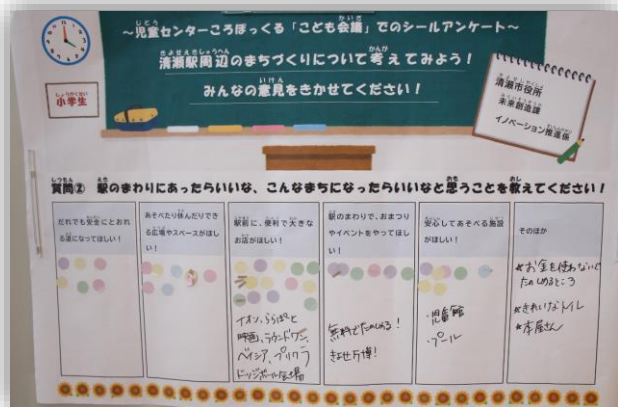 ～児童センターころぽっくる「こども会議」でのシールアンケート～
清瀬駅周辺のまちづくりについて考えてみよう！
みんなの意見をきかせてください！
小学生
清瀬市役所
未来創造課
イノベーション推進係
質問② 駅のまわりにあったらいいな、こんなまちになったらいいなと思うことを教えてください！
だれでも安全にとおれ
る道になってほしい！
あそべたり休んだりでき
る広場やスペースがほし
い！
駅前に、便利で大きな
お店がほしい！
イオン、ららぽーと
映画、ラウンドワン、
ベイシア、プリクラ
ドッジボール会場
駅のまわりで、おまつり
やイベントをやってほし
い！
無料でたのしめる！
きよせ万博！
安心してあそべる施設
がほしい！
・児童館
・プール
そのほか
★お金を使わないで
たのしめるところ
★きれいなトイレ
★本屋さん